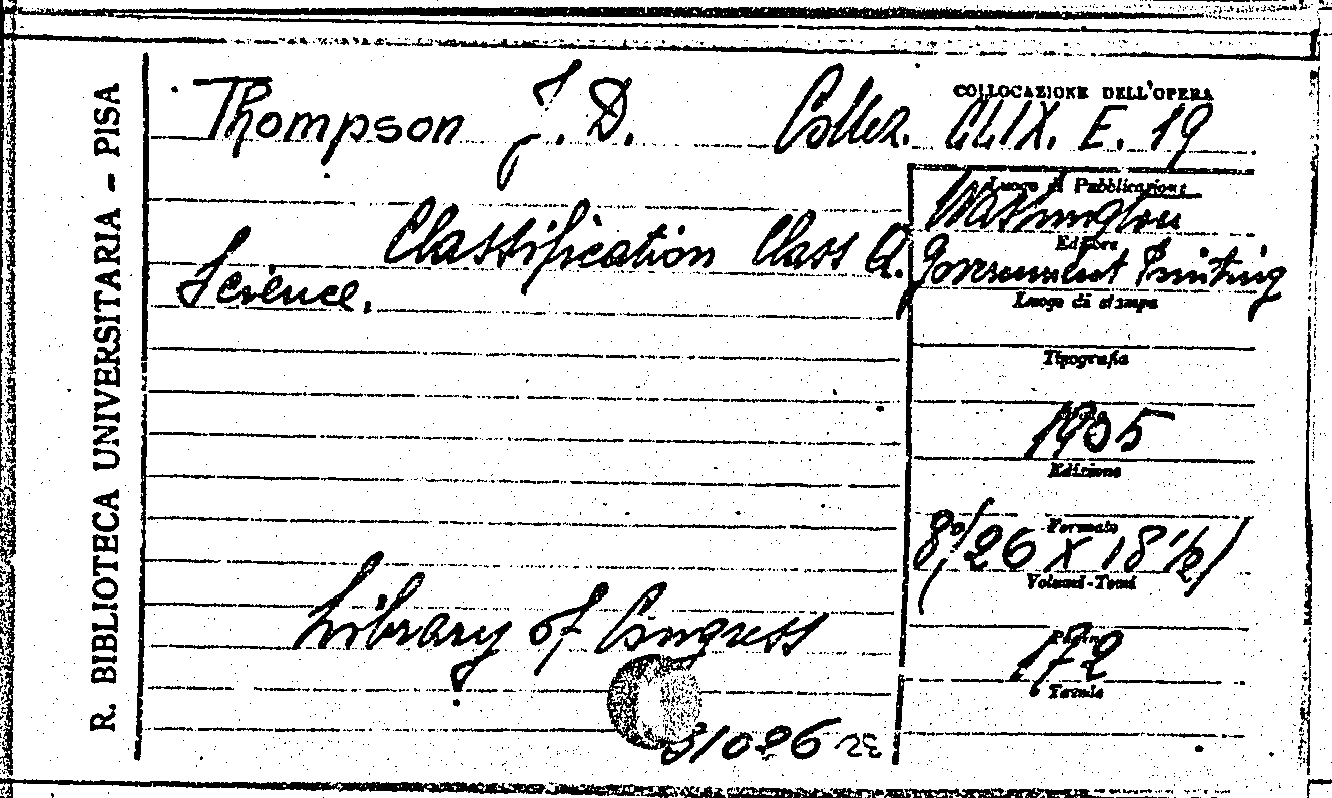 R. BIBLIOTECA UNIVERSITARIA - PISA
COLLOCAZIONE DELL'OPERA
Thompson J. D. Collez. CLIX. E. 19
Luogo di Pubblicazione
Washington
Classification Class Q.
Editore
Government Printing
Science.
Luogo di stampa
Tipografia
1905
Edizione
Formato
8°(26 X 18 1/2)
Volumi-Tomi
Library of Congress
Pagine
172
Tavole
31086